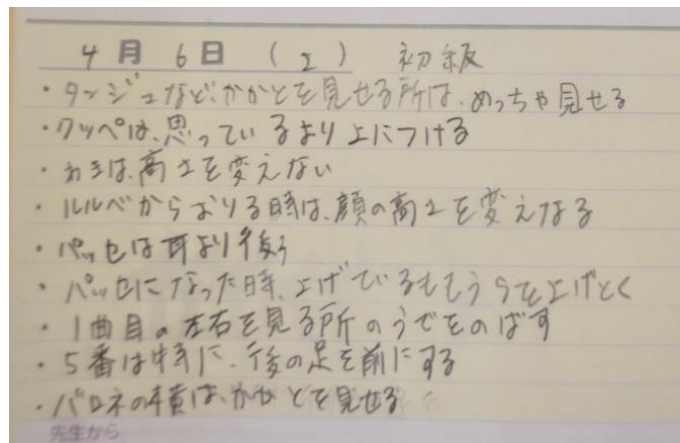 4月 6日 (工) 初級
・タンジュなど、かかとを見せる所は、めっちゃ見せる
・クッペは、思っているより上につける
・わきは、高さを変えない
・ルルベからおりる時は、顔の高さを変えなる
・パッセは耳より後ろ
・パッセになった時、上げているももうらを上げとく
・1曲目の左右を見る所のうでをのばす
・5番は特に、後の足を前にする
・バロネの横は、かかとを見せる
先生から